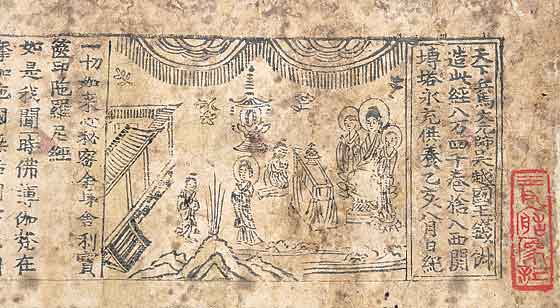 天下兵馬大元帥吳越國王錢俶
造此經八万四千卷捨入西關
塼塔永充供養乙亥八月日紀
一切如來心秘密全身舍利寶
篋印陀羅尼經
如是我聞一時佛薄伽梵在